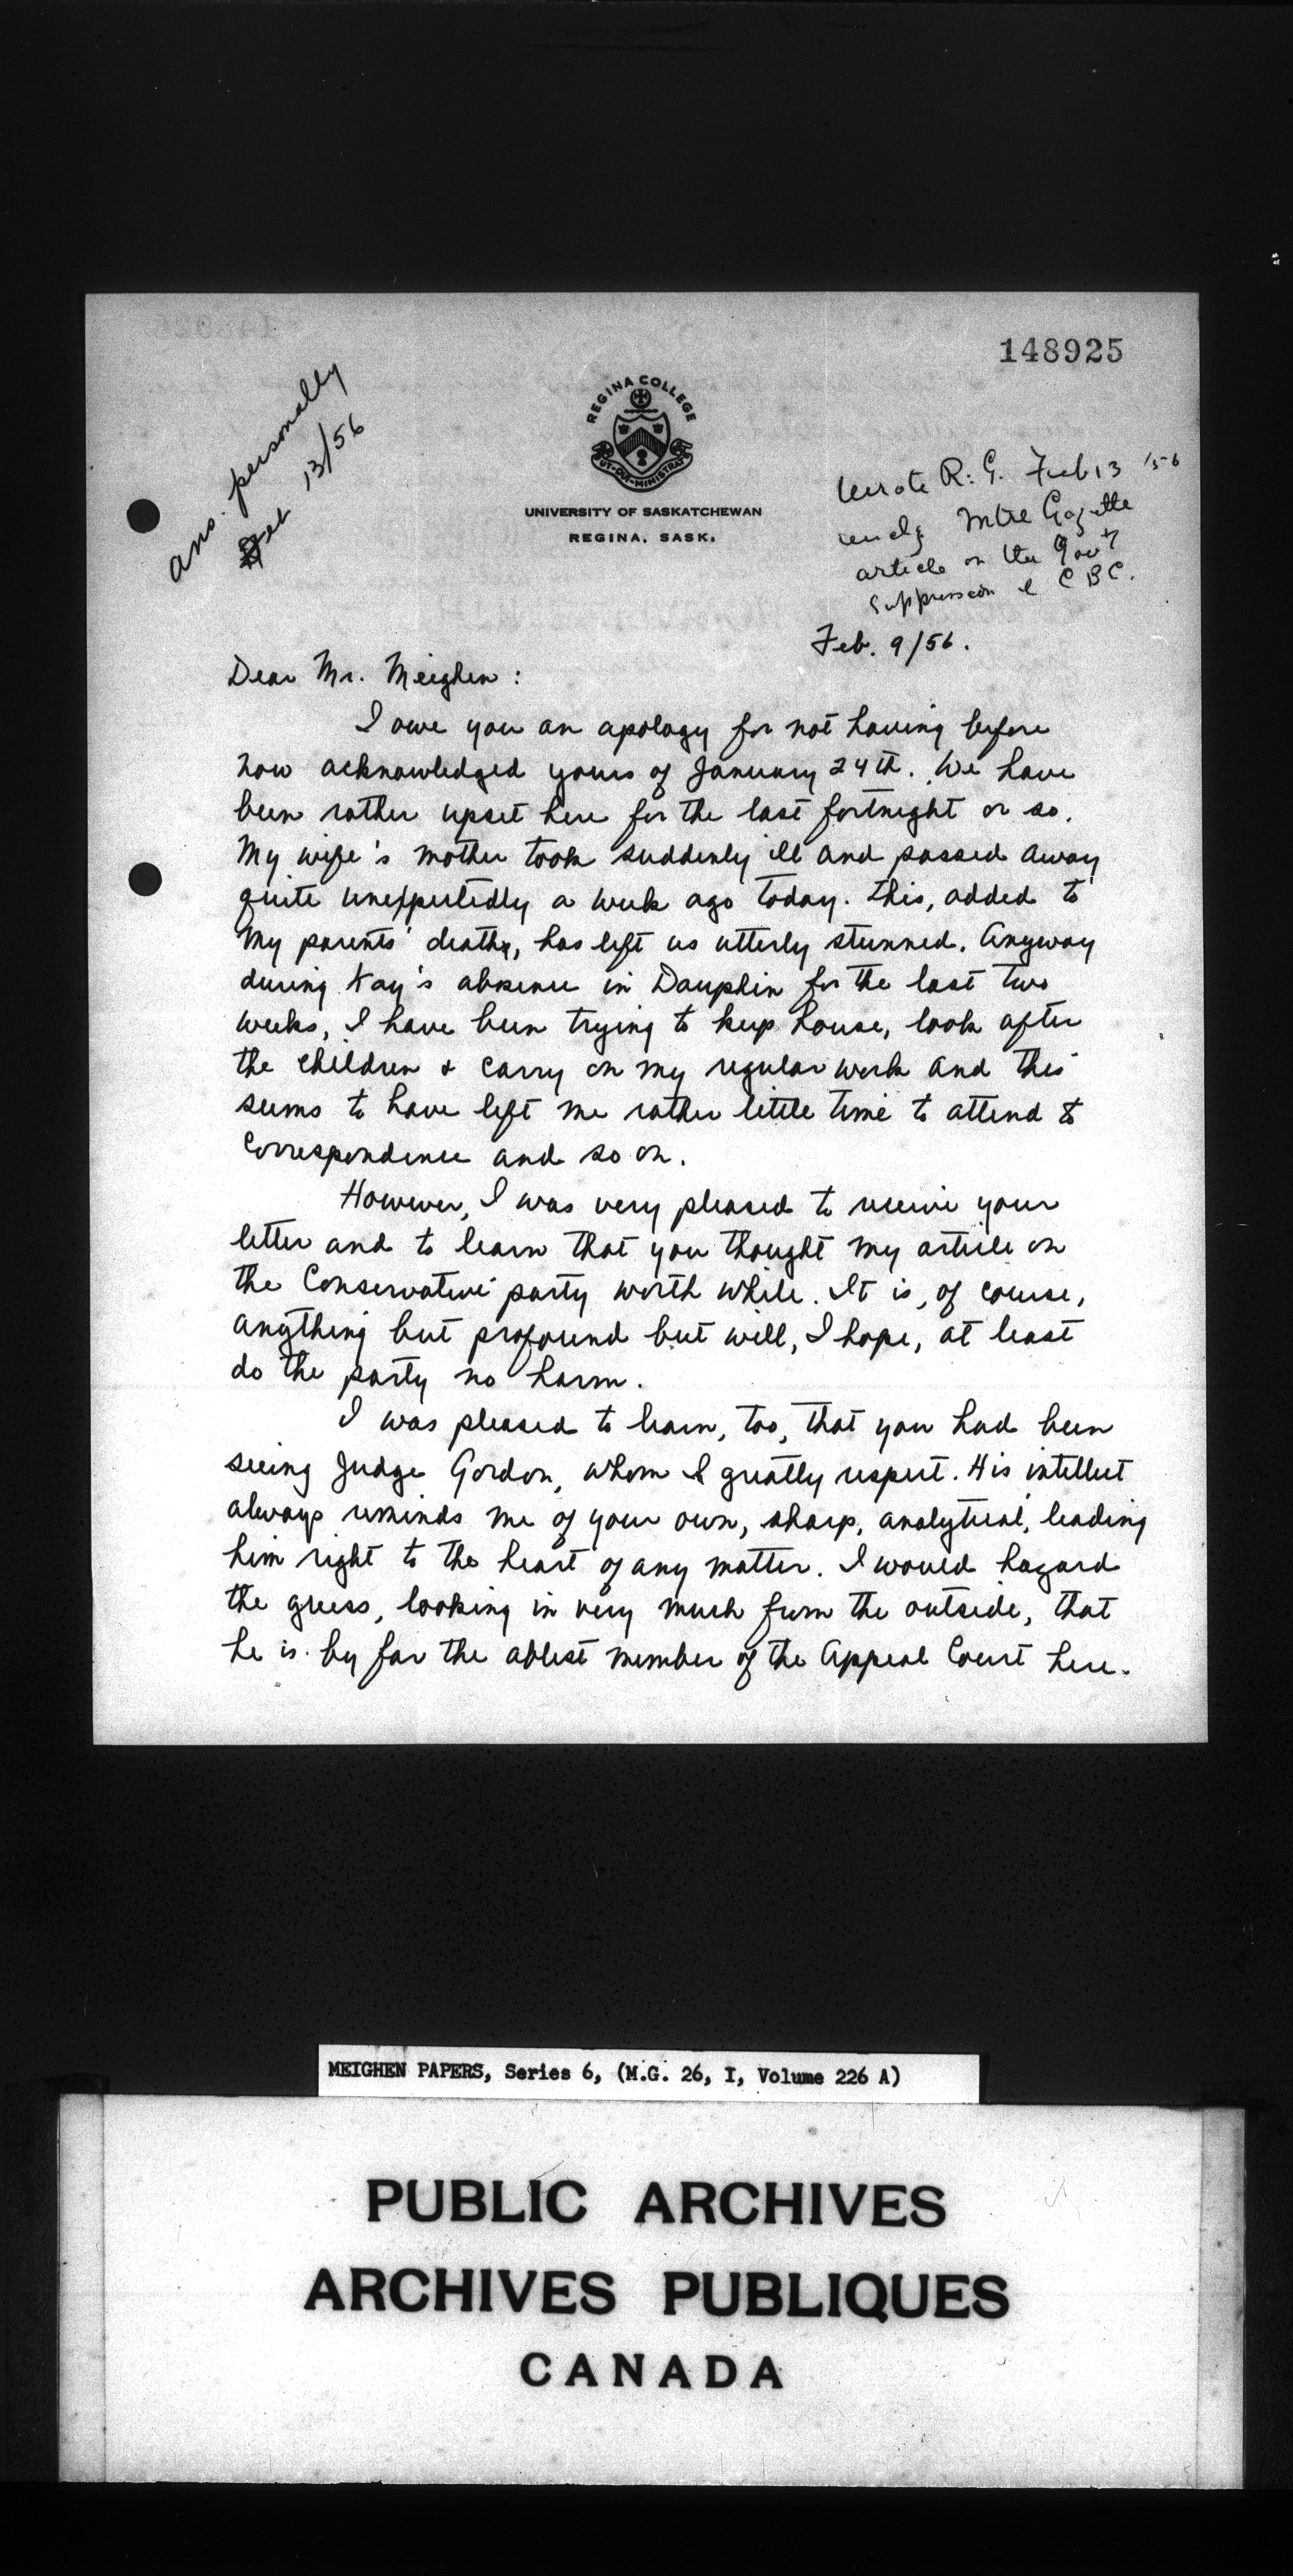 148925
ans. personally
Feb 13/56
REGINA COLLEGE
UT·QUI·MINISTRAT
UNIVERSITY OF SASKATCHEWAN
REGINA, SASK.
Wrote R. G. Feb 13 '56
Mtre Gazette
article on the Gov't
Suppression & CBC.
Feb. 9/56.
Dear Mr. Meighen:
I owe you an apology for not having before
now acknowledged yours of January 24th. We have
been rather upset here for the last fortnight or so.
My wife's mother took suddenly ill and passed away
quite unexpectedly a week ago today. This, added to
my parents' deaths, has left us utterly stunned. Anyway
during Kay's absence in Dauphin for the last two
weeks, I have been trying to keep house, look after
the children & carry on my regular work and this
seems to have left me rather little time to attend to
correspondence and so on.
However, I was very pleased to receive your
letter and to learn that you thought my article on
the Conservative party worth while. It is, of course,
anything but profound but will, I hope, at least
do the party no harm.
I was pleased to learn, too, that you had been
seeing Judge Gordon, whom I greatly respect. His intellect
always reminds me of your own, sharp, analytical, leading
him right to the heart of any matter. I would hazard
the guess, looking in very much from the outside, that
he is by far the ablest member of the Appeal Court here.
MEIGHEN PAPERS, Series 6, (M.G. 26, I, Volume 226 A)
PUBLIC ARCHIVES
ARCHIVES PUBLIQUES
CANADA